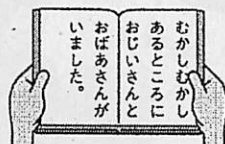 むかしむかし
あるところに
おじいさんと
おばあさんが
いました。